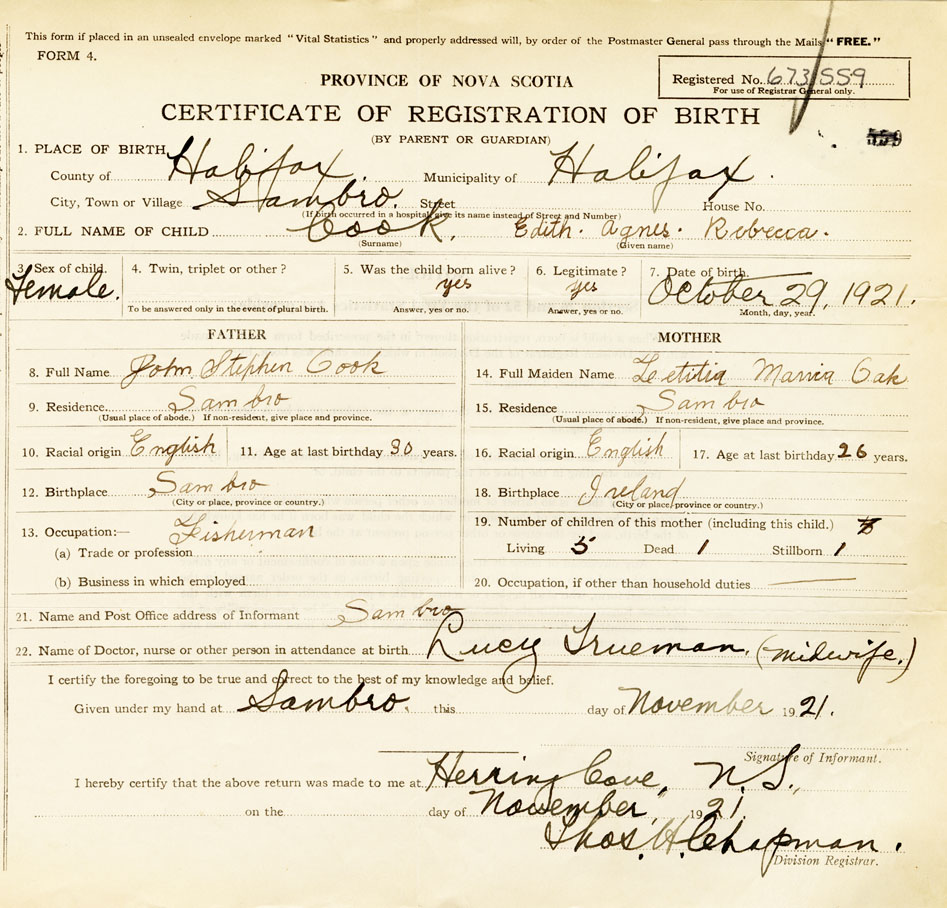 This form if placed in an unsealed envelope marked "Vital Statistics" and properly addressed will, by order of the Postmaster General pass through the Mails "FREE."
FORM 4.
PROVINCE OF NOVA SCOTIA
Registered No. 673559
For use of Registrar General only.
CERTIFICATE OF REGISTRATION OF BIRTH
(BY PARENT OR GUARDIAN)
1. PLACE OF BIRTH
County of Halifax Municipality of Halifax.
City, Town or Village Sambro. Street House No.
(If birth occurred in a hospital, give its name instead of Street and Number)
2. FULL NAME OF CHILD Cook, Edith. Agnes. Rebecca.
(Surname) (Given name)
3. Sex of child. 4. Twin, triplet or other? 5. Was the child born alive? 6. Legitimate? 7. Date of birth.
Female. yes yes October 29, 1921.
To be answered only in the event of plural birth. Answer, yes or no. Answer, yes or no. Month, day, year.
FATHER MOTHER
8. Full Name John Stephen Cook 14. Full Maiden Name Letitia Marria Oak
9. Residence. Sambro 15. Residence Sambro
(Usual place of abode.) If non-resident, give place and province. (Usual place of abode.) If non-resident, give place and province.
10. Racial origin English 11. Age at last birthday 30 years. 16. Racial origin English 17. Age at last birthday 26 years.
12. Birthplace Sambro 18. Birthplace Ireland
(City or place, province or country.) (City or place, province or country.)
13. Occupation:— Fisherman 19. Number of children of this mother (including this child.)
(a) Trade or profession Living 5 Dead 1 Stillborn 1
(b) Business in which employed 20. Occupation, if other than household duties
21. Name and Post Office address of Informant Sambro
22. Name of Doctor, nurse or other person in attendance at birth Lucy Trueman. (midwife.)
I certify the foregoing to be true and correct to the best of my knowledge and belief.
Given under my hand at Sambro. this day of November 1921.
Signature of Informant.
I hereby certify that the above return was made to me at Herring Cove, N.S.,
on the day of November, 1921
Thos. H. Chapman.
Division Registrar.